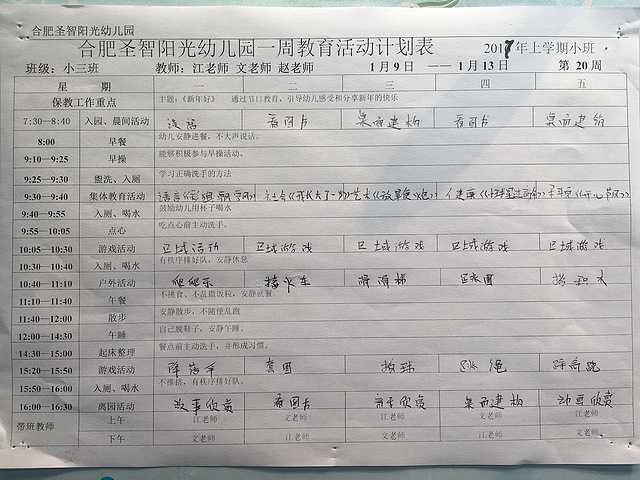 合肥圣智阳光幼儿园
合肥圣智阳光幼儿园一周教育活动计划表 2017年上学期小班
班级：小三班 教师：江老师 文老师 赵老师 1月9日 ——1月13日 第20周
星 期 一 二 三 四 五
保教工作重点 主题：《新年好》 通过节日教育，引导幼儿感受和分享新年的快乐
7:30—8:40 入园、晨间活动 谈话 看图书 桌面建构 看图书 桌面建构
8:00 早餐 幼儿安静进餐，不大声说话。
9:10—9:25 早操 能够积极参与早操活动。
9:25—9:30 盥洗、入厕 学习正确洗手的方法
9:30—9:40 集体教育活动 语言 社会《我长大了一岁》 艺术 健康
9:40—9:55 入厕、喝水 鼓励幼儿用杯子喝水
9:55—10:05 点心 吃点心前主动洗手。
10:05—10:30 游戏活动 区域活动 区域游戏 区域游戏 区域游戏 区域游戏
10:30—10:40 入厕、喝水 有秩序排好队，安静休息
10:40—11:10 户外活动 爬爬乐 接火车 滑滑梯 搭积木
11:10—11:40 午餐 不挑食、不乱撒饭粒，安静就餐
11:40—12:00 散步 安静散步，不随便乱跑
12:00—14:30 午睡 自己脱鞋子，安静午睡。
14:30—15:00 起床整理 餐点前主动洗手，并形成习惯。
15:20—15:50 游戏活动 降落伞 套圈 拍球 跳绳
15:50—16:00 入厕、喝水 不推搡，有秩序排好队。
16:00—16:30 离园活动 故事欣赏 看图书 音乐欣赏 桌面建构 动画欣赏
带班教师 上午 江老师 文老师 江老师 文老师 江老师
下午 文老师 江老师 文老师 江老师 文老师